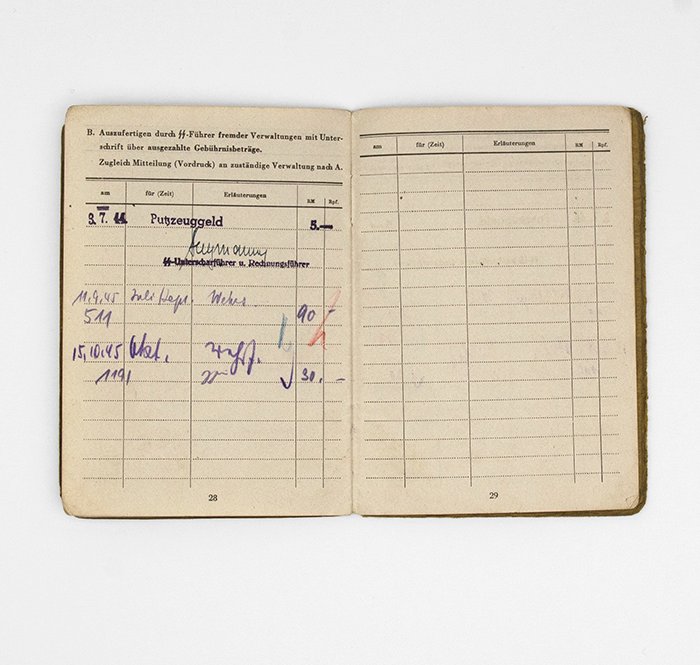 B. Auszufertigen durch ϟϟ-Führer fremder Verwaltungen mit Unter-
schrift über ausgezahlte Gebührnisbeträge.
Zugleich Mitteilung (Vordruck) an zuständige Verwaltung nach A.
am für (Zeit) Erläuterungen RM Rpf.
3. 7. 44 Putzzeuggeld 5.—
ϟϟ-Unterscharführer u. Rechnungsführer
11.9.45 Juli/Sept. 90 -
511
15.10.45 Okt. 30. -
1191
28
am für (Zeit) Erläuterungen RM Rpf.
29